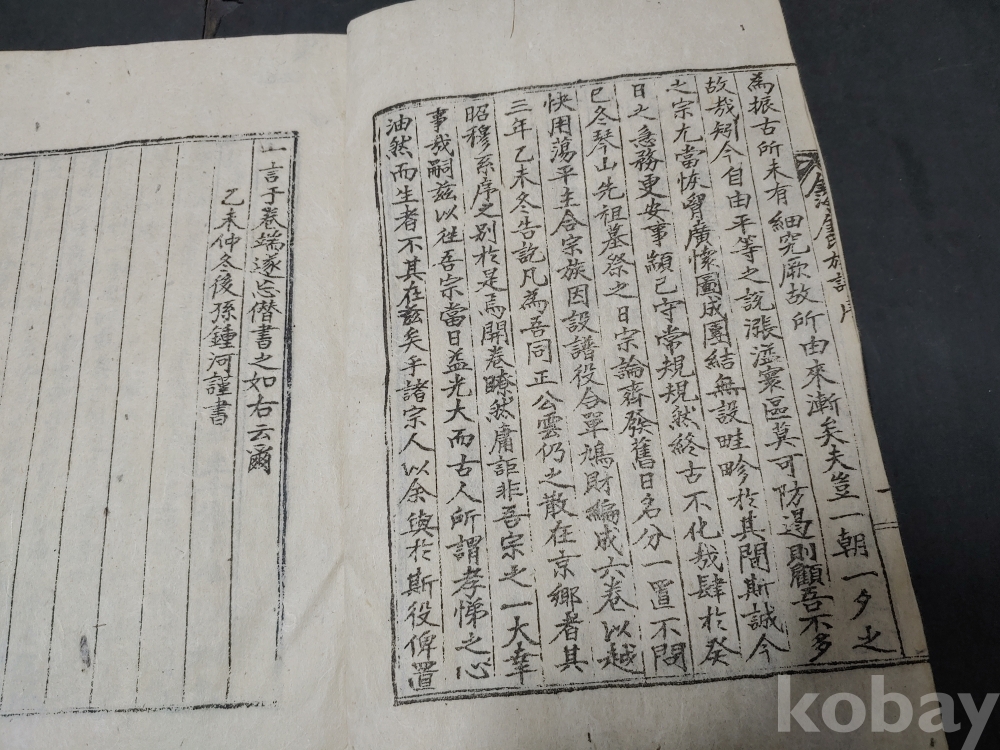 為振古所未有細究厥故所由來漸矣夫豈一朝一夕之
故哉矧今自由平等之說漲溢寰區莫可防遏則顧吾不多
之宗尤當恢胷廣懷圖成團結無設畦畛於其間斯誠今
日之急務更安事顓己守常規規然終古不化哉肆於癸
巳冬琴山先祖墓祭之日宗論齊發舊日名分一置不問
快用蕩平主合宗族因設譜役合單鳩財編成六卷以越
三年乙未冬告訖凡為吾同正公雲仍之散在京鄉者其
昭穆系序之別於是焉開卷瞭然庸詎非吾宗之一大幸
事哉嗣玆以往吾宗當日益光大而古人所謂孝悌之心
油然而生者不其在玆矣乎諸宗人以余與於斯役俾置
一言于卷端遂忘僭書之如右云爾
乙未仲冬後孫鍾河謹書
族譜序
一
kobay